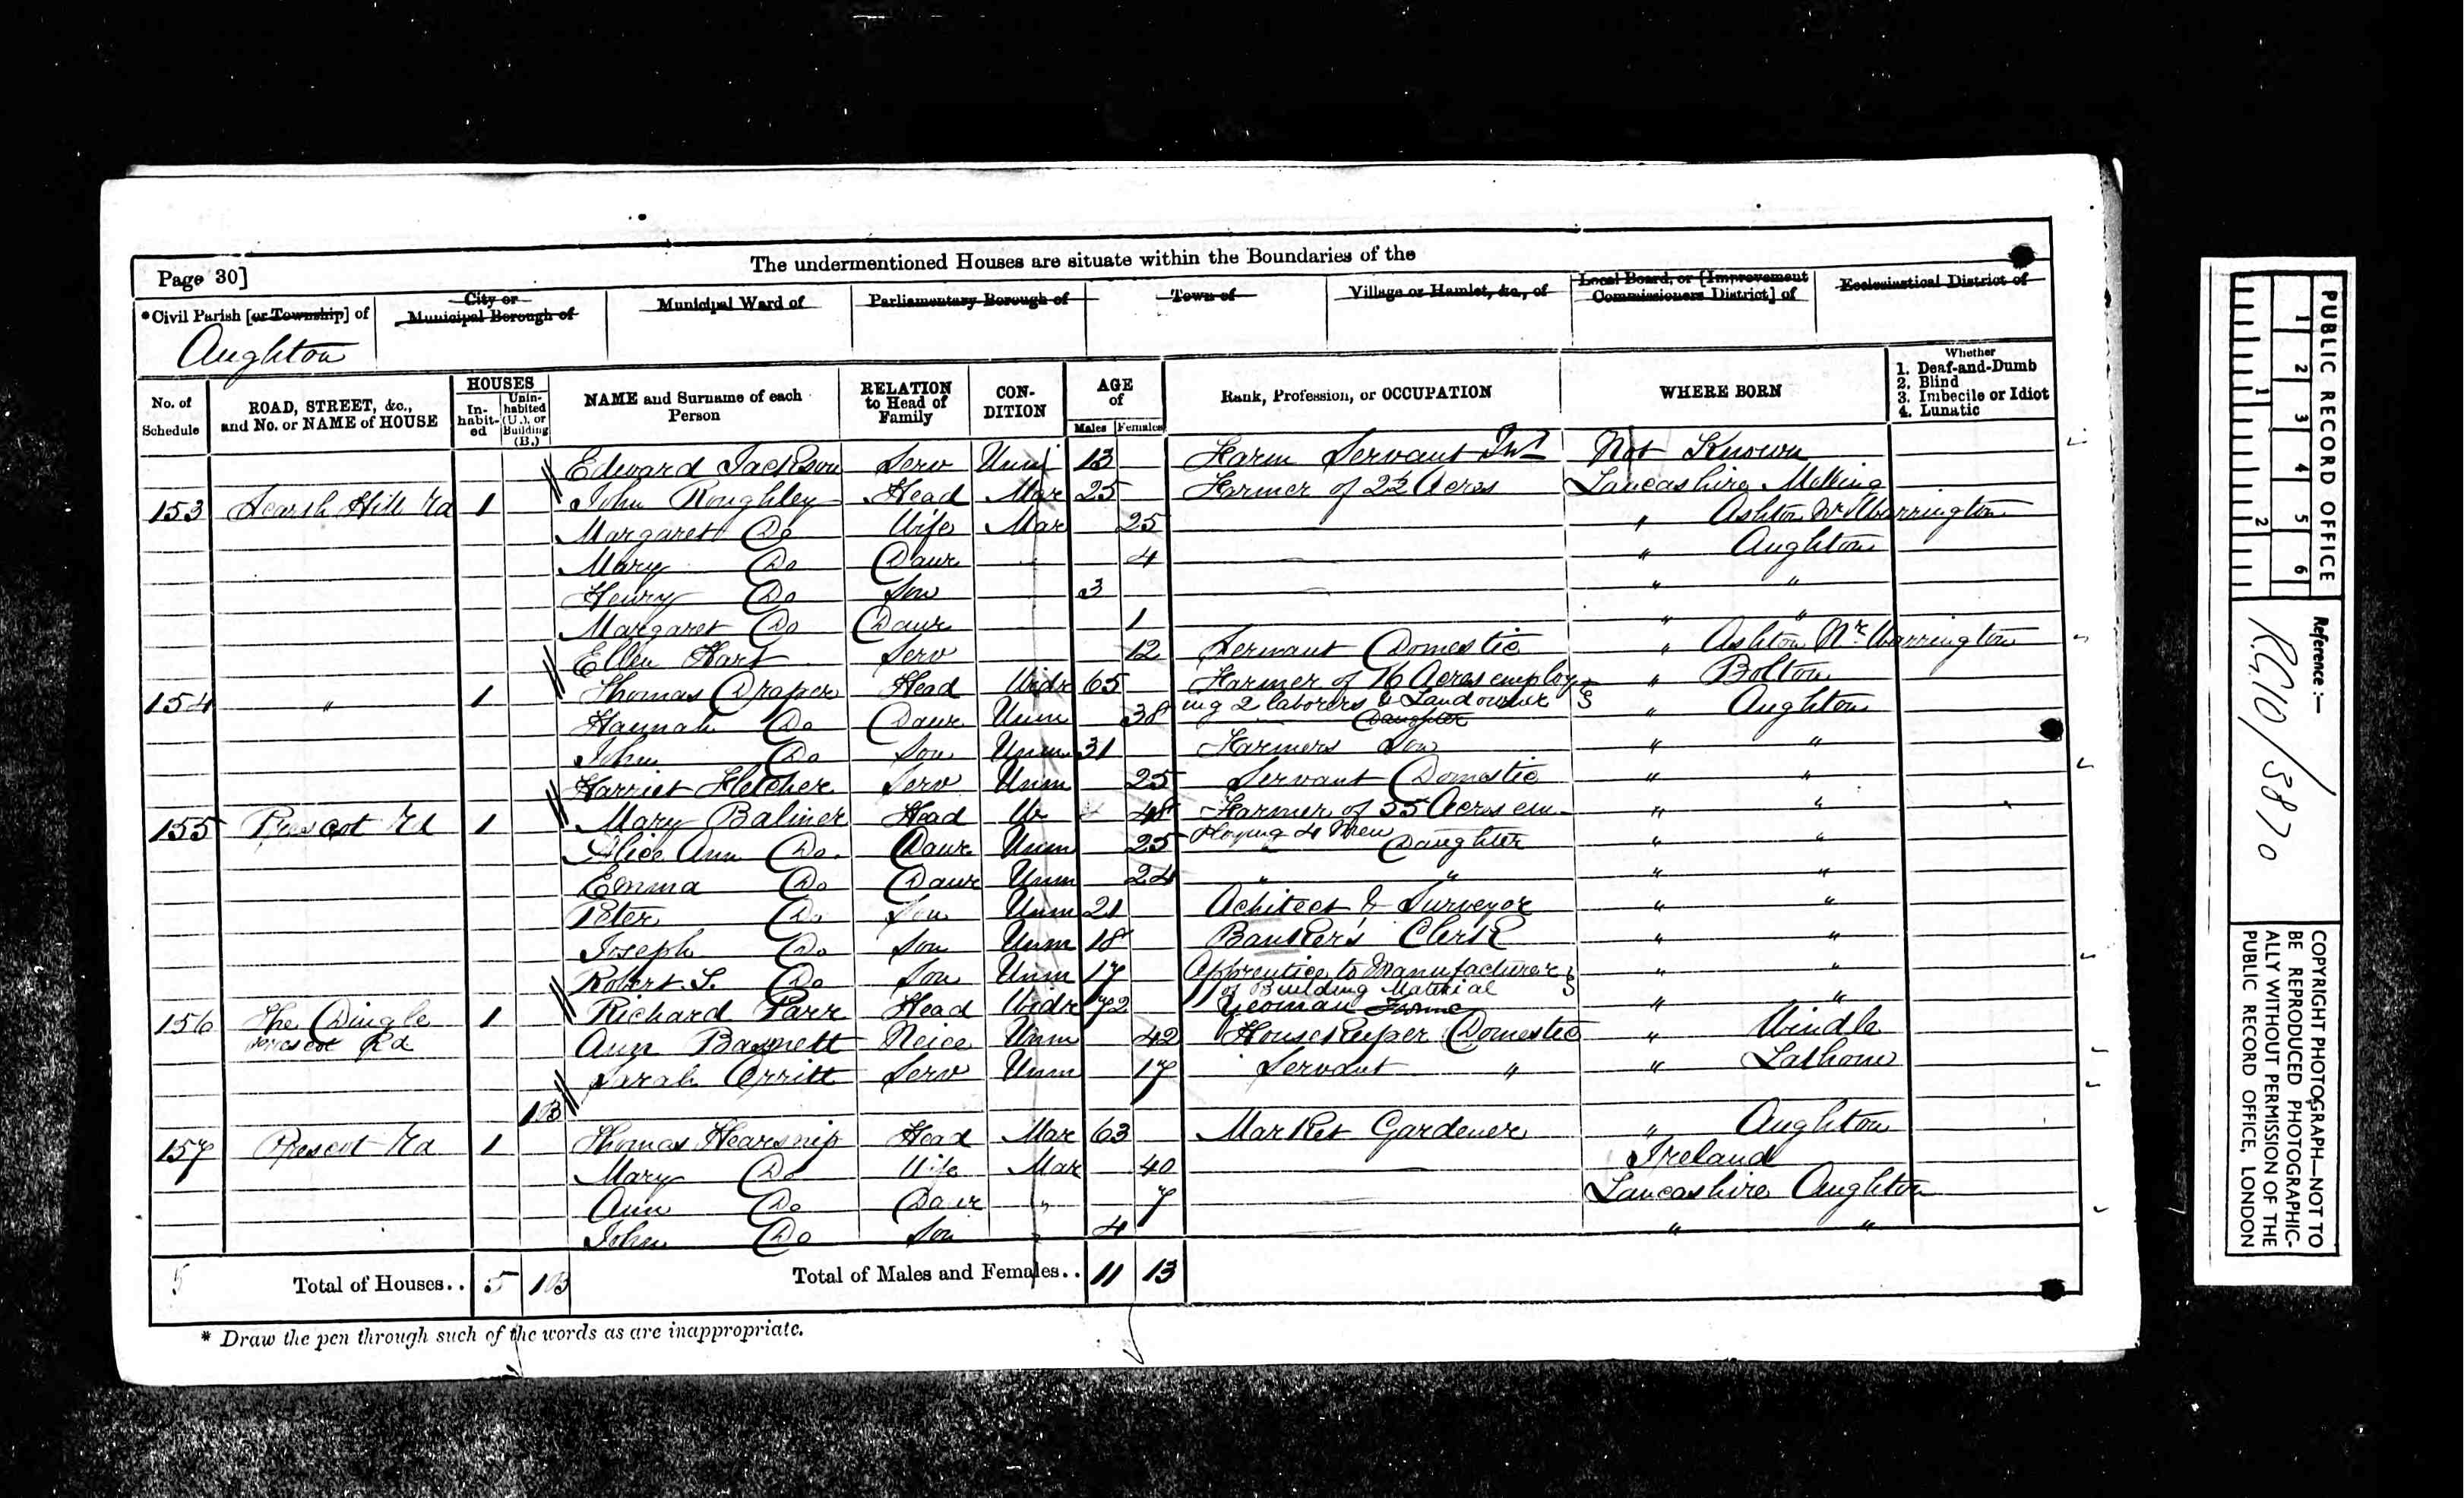 The undermentioned Houses are situate within the Boundaries of the
Page 30]
*Civil Parish [or Township] of
City or
Municipal Borough of
Municipal Ward of
Parliamentary Borough of
Town of
Village or Hamlet, &c., of
Local Board, or [Improvement
Commissioners District] of
Ecclesiastical District of
Aughton
No. of
Schedule
ROAD, STREET, &c.,
and No. or NAME of HOUSE
HOUSES
In-
habit-
ed
Unin-
habited
(U.), or
Building
(B.)
NAME and Surname of each
Person
RELATION
to Head of
Family
CON-
DITION
AGE
of
Males Females
Rank, Profession, or OCCUPATION
WHERE BORN
Whether
1. Deaf-and-Dumb
2. Blind
3. Imbecile or Idiot
4. Lunatic
Edward Jackson Serv Unm 13 Farm Servant Ind Not Known
153 Hill Rd 1 John Roughley Head Mar 25 Farmer of 22 Acres Lancashire Melling
Margaret Do Wife Mar 25 " Ashton Nr Warrington
Mary Do Daur 4 " Aughton
Henry Do Son 3 " "
Margaret Do Daur 1 " "
Ellen Hart Serv 12 Servant Domestic " Ashton Nr Warrington
154 " 1 Thomas Draper Head Widr 65 Farmer of 76 Acres employ- " Bolton
ing 2 laborers & Landowner
Hannah Do Daur Unm 38 Daughter " Aughton
John Do Son Unm 31 Farmers Son " "
Harriet Fletcher Serv Unm 25 Servant Domestic " "
155 Prescot Rd 1 Mary Balmer Head W 48 Farmer of 55 Acres em- " "
ploying 4 Men
Alice Ann Do Daur Unm 25 Daughter " "
Emma Do Daur Unm 24 " " " "
Peter Do Son Unm 21 Achitect & Surveyor " "
Joseph Do Son Unm 18 Banker's Clerk " "
Robert S. Do Son Unm 17 Apprentice to Manufacturer " "
of Building Material
156 The Dingle 1 Richard Parr Head Widr 72 Yeoman " "
Prescot Rd Ann Barnett Neice Unm 42 Housekeeper Domestic " Windle
Sarah Orritt Serv Unm 17 Servant " " Lathom
1B
157 Prescot Rd 1 Thomas Hearsnip Head Mar 63 Market Gardener " Aughton
Mary Do Wife Mar 40 Ireland
Ann Do Daur " 7 Lancashire Aughton
John Do Son 4 " "
5 Total of Houses.. 5 1B Total of Males and Females.. 11 13
* Draw the pen through such of the words as are inappropriate.
PUBLIC RECORD OFFICE
1 2 3 4 5 6
1 2
Reference:—
R.G.10/3870
COPYRIGHT PHOTOGRAPH—NOT TO
BE REPRODUCED PHOTOGRAPHIC-
ALLY WITHOUT PERMISSION OF THE
PUBLIC RECORD OFFICE, LONDON